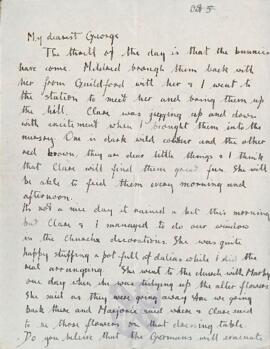 Oct 5-
My dearest George
The thrill of the day is that the bunnies
have come. Mildred brough them back with
her from Guildford with her & I went to
the station to meet her and bring them up
the hill. Clare was jigging up and down
with excitement when I brought them into the
nursery. One is dark wild colour and the other
red brown, they are dear little things & I think
that Clare will find them great fun. She will
be able to feed them every morning and
afternoon.
Its not a nice day it rained a bit this morning
but Clare & I managed to do our window
in the Church decorations. She was quite
happy stuffing a pot full of dalias while I did the
real arranging. She went to the church with Marby
one day when she was tidying up the alter flowers
She said as they were going away are we going
back there and Marjorie said where & Clare said
to those flowers on that dressing table.
Do you believe that the Germans will evacuate